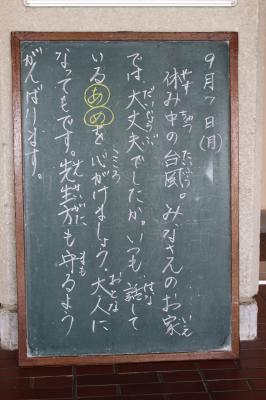 9月7日(月)
休み中の台風。みなさんのお家
では、大丈夫でしたか。いつも、話して
いるあめを心がけましょう。大人に
なってもです。先生方も守るよう
がんばります。